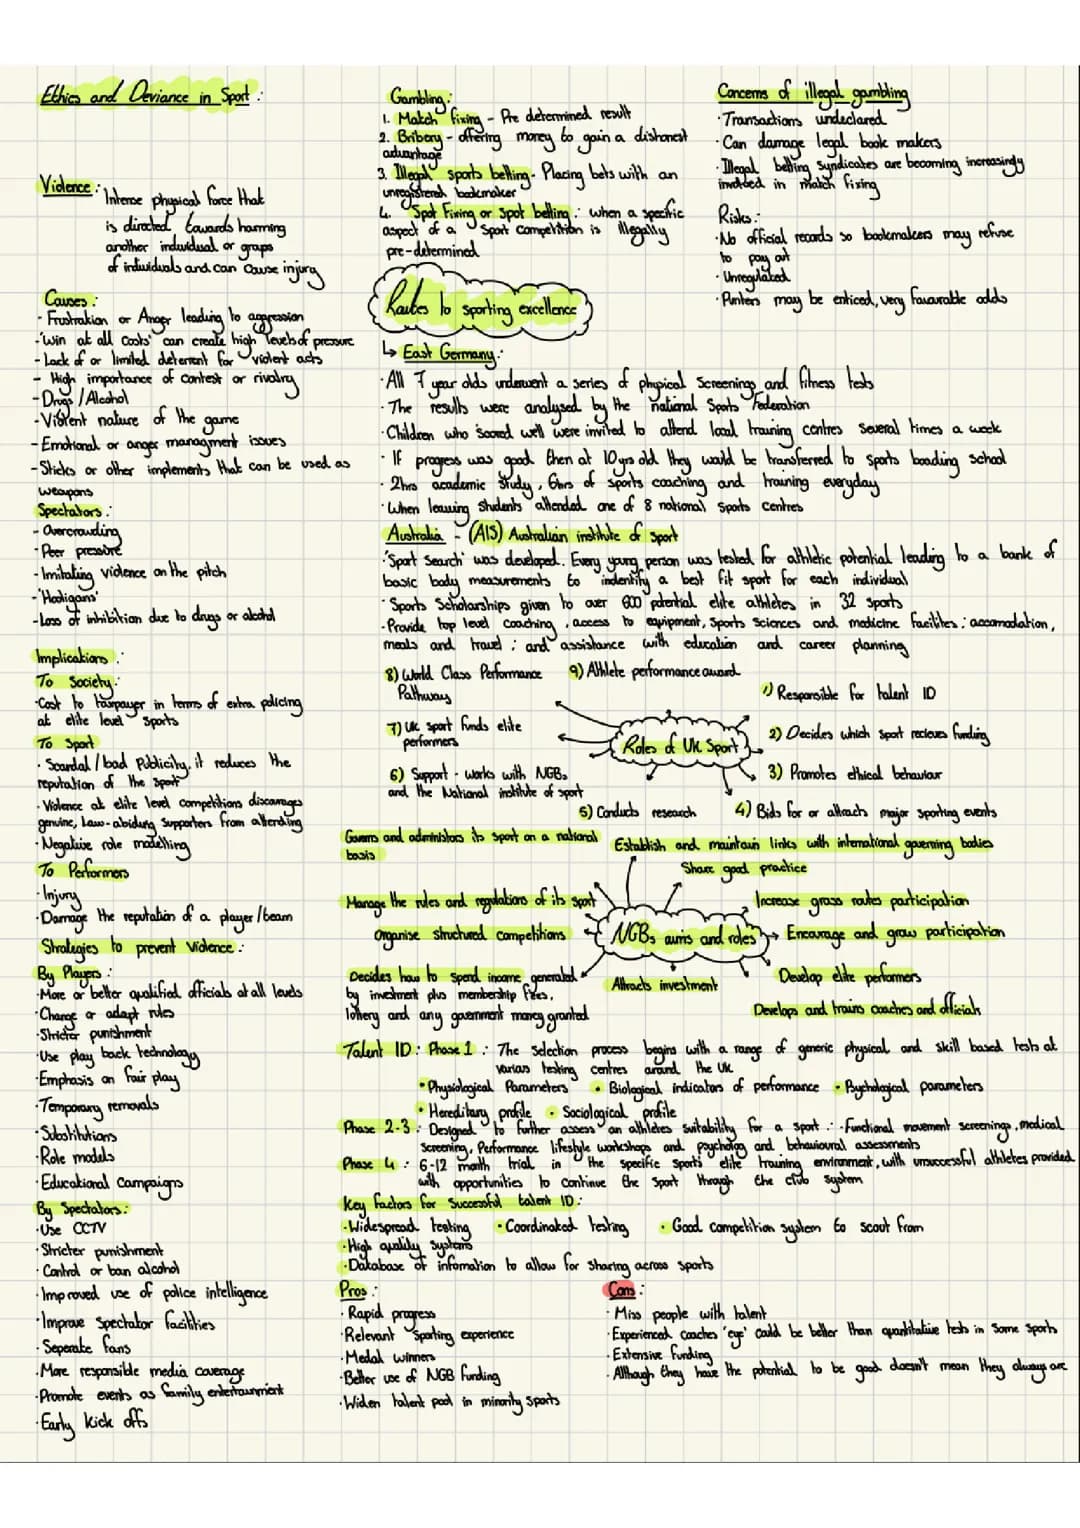 Ethics and Deviance in Sport :
Violence : Intense physical force that
is directed towards harming
another individual or groups
of individuals and can cause injury
Causes :
- Frustration or Anger leading to aggression
- 'Win at all costs' can create high levels of pressure
- Lack of or limited deterrent for violent acts
- High importance of contest or rivalry
- Drugs / Alcohol
- Violent nature of the game
- Emotional or anger managment issues
- Sticks or other implements that can be used as
weapons
Spectators :
- Overcrowding
- Peer pressure
- Imitating violence on the pitch
- 'Hooligans'
- Loss of inhibition due to drugs or alcohol
Implications :
To Society :
· Cost to taxpayer in terms of extra policing
at elite level sports
To Sport
· Scandal / bad Publicity, it reduces the
reputation of the sport
· Violence at elite level competitions discourages
genuine, law-abiding supporters from attending
· Negative role modelling
To Performers
· Injury
· Damage the reputation of a player / team
Strategies to prevent Violence :
By Players :
· More or better qualified officials at all levels
· Change or adapt rules
· Stricter punishment
· Use play back technology
· Emphasis on fair play
· Temporary removals
· Substitutions
· Role models
· Educational Campaigns
By Spectators :
· Use CCTV
· Stricter punishment
· Control or ban alcohol
· Improved use of police intelligence
· Improve Spectator facilities
· Seperate fans
· More responsible media coverage
· Promote events as family entertainment
· Early kick offs
Gambling :
1. Match fixing - Pre determined result
2. Bribery - offering money to gain a dishonest
advantage
3. Illegal sports betting - Placing bets with an
unregistered bookmaker
4. Spot Fixing or Spot betting : when a specific
aspect of a Sport competition is illegally
pre-determined
Concerns of illegal gambling
· Transactions undeclared
· Can damage legal book makers
· Illegal betting syndicates are becoming increasingly
involved in match fixing
Risks :
· No official records so bookmakers may refuse
to pay out
· Unregulated
· Punters may be enticed, very favourable odds
Routes to sporting excellence
↳ East Germany :
· All 7 year olds underwent a series of physical Screenings and fitness tests
· The results were analysed by the national Sports Federation
· Children who scored well were invited to attend local training centres several times a week
· If progress was good then at 10yrs old they would be transferred to sports boarding school
· 2hrs academic study, 6hrs of sports coaching and training everyday
· When leaving students attended one of 8 national sports centres
Australia - (AIS) Australian institute of sport
· 'Sport Search' was developed. Every young person was tested for athletic potential leading to a bank of
basic body measurements to indentify a best fit sport for each individual
· Sports Scholarships given to over 600 potential elite athletes in 32 sports
- Provide top level coaching, access to equipment, Sports Sciences and medicine facilites ; accomodation,
meals and travel ; and assistance with education and career planning
Roles of UK Sport
1) Responsible for talent ID
2) Decides which sport recieves funding
3) Promotes ethical behaviour
4) Bids for or attracts major sporting events
5) Conducts research
6) Support - works with NGBs
and the National institute of sport
7) UK sport funds elite
performers
8) World Class Performance
Pathway
9) Athlete performance award
NGBs aims and roles
Governs and administors its sport on a national
basis
Establish and maintain links with international governing bodies
Share good practice
Manage the rules and regulations of its sport
Increase grass routes participation
Organise structured competitions
Encourage and grow participation
Decides how to spend income generated
by investment plus membership fees,
lottery and any government money granted
Attracts investment
Develop elite performers
Develops and trains coaches and officials
Talent ID : Phase 1 : The selection process begins with a range of generic physical and skill based tests at
various testing centres around the UK
• Physiological Parameters • Biological indicators of performance • Pychological parameters
• Hereditary profile • Sociological profile
Phase 2-3 : Designed to further assess an athletes suitability for a sport : - Functional movement screenings, medical
screening, Performance lifestyle workshops and psycholog and behavioural assessments
Phase 4 : 6-12 month trial in the specific sports elite training environment, with unsuccessful athletes provided
with opportunities to continue the sport through the club system
Key factors for successful talent ID :
· Widespread testing • Coordinated testing • Good competition system to scout from
· High quality systems
· Database of infomation to allow for sharing across sports
Pros :
· Rapid progress
· Relevant sporting experience
· Medal winners
· Better use of NGB funding
· Widen talent pool in minority sports
Cons :
· Miss people with talent
· Experienced coaches 'eye' could be better than quantitative tests in some sports
· Extensive funding
· Although they have the potential to be good doesn't mean they always are